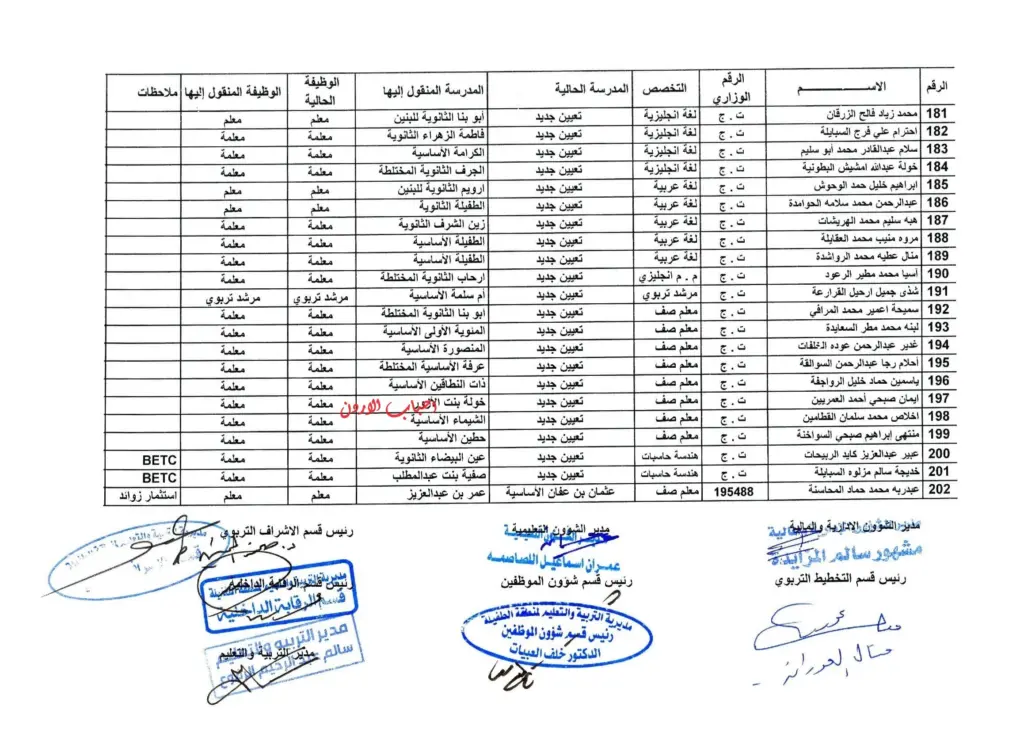 الرقم الاســـــــم الرقم الوزاري التخصص المدرسة الحالية المدرسة المنقول إليها الوظيفة الحالية الوظيفة المنقول إليها ملاحظات
181 محمد زياد فالح الزرقان ت . ج لغة انجليزية تعيين جديد أبو بنا الثانوية للبنين معلم معلم
182 احترام علي فرج السبايلة ت . ج لغة انجليزية تعيين جديد فاطمة الزهراء الثانوية معلمة معلمة
183 سلام عبدالقادر محمد أبو سليم ت . ج لغة انجليزية تعيين جديد الكرامة الأساسية معلمة معلمة
184 خولة عبدالله امشيش البطونية ت . ج لغة انجليزية تعيين جديد الجرف الثانوية المختلطة معلمة معلمة
185 ابراهيم خليل حمد الوحوش ت . ج لغة عربية تعيين جديد ارويم الثانوية للبنين معلم معلم
186 عبدالرحمن محمد سلامه الحوامدة ت . ج لغة عربية تعيين جديد الطفيلة الثانوية معلم معلم
187 هبه سليم محمد الهريشات ت . ج لغة عربية تعيين جديد زين الشرف الثانوية معلمة معلمة
188 مروه منيب محمد العقايلة ت . ج لغة عربية تعيين جديد الطفيلة الأساسية معلمة معلمة
189 منال عطيه محمد الرواشدة ت . ج لغة عربية تعيين جديد الطفيلة الأساسية معلمة معلمة
190 آسيا محمد مطير الرعود ت . ج م . م انجليزي تعيين جديد ارحاب الثانوية المختلطة معلمة معلمة
191 شذى جميل ارحيل القرارعة ت . ج مرشد تربوي تعيين جديد أم سلمة الأساسية مرشد تربوي مرشد تربوي
192 سميحة اعمير محمد المرافي ت . ج معلم صف تعيين جديد أبو بنا الثانوية المختلطة معلمة معلمة
193 لبنه محمد مطر السعايدة ت . ج معلم صف تعيين جديد المئوية الأولى الأساسية معلمة معلمة
194 غدير عبدالرحمن عوده الخلفات ت . ج معلم صف تعيين جديد المنصورة الأساسية معلمة معلمة
195 أحلام رجا عبدالرحمن السوالقة ت . ج معلم صف تعيين جديد عرفة الأساسية المختلطة معلمة معلمة
196 ياسمين حماد خليل الرواجفة ت . ج معلم صف تعيين جديد ذات النطاقين الأساسية معلمة معلمة
197 ايمان صبحي أحمد العمريين ت . ج معلم صف تعيين جديد خولة بنت معلمة معلمة
198 اخلاص محمد سلمان القطامين ت . ج معلم صف تعيين جديد الشيماء الأساسية معلمة معلمة
199 منتهى إبراهيم صبحي السواخنة ت . ج معلم صف تعيين جديد حطين الأساسية معلمة معلمة
200 عبير عبدالعزيز كايد الربيحات ت . ج هندسة حاسبات تعيين جديد عين البيضاء الثانوية معلمة معلمة BETC
201 خديجة سالم مزلوه السبايلة ت . ج هندسة حاسبات تعيين جديد صفية بنت عبدالمطلب معلمة معلمة BETC
202 عبدربه محمد حماد المحاسنة 195488 معلم صف عثمان بن عفان الأساسية عمر بن عبدالعزيز معلم معلم استثمار زوائد
مدير الشؤون الادارية والمالية مدير الشؤون التعليمية رئيس قسم الاشراف التربوي
مشهور سالم المزايدة عمران اسماعيل اللصاصمه
رئيس قسم التخطيط التربوي رئيس قسم شؤون الموظفين رئيس قسم الرقابة الداخلية
قسم الرقابة الداخلية
مديرية التربية والتعليم لمنطقة الطفيلة
رئيس قسم شؤون الموظفين
الدكتور خلف العبيات
مدير التربية والتعليم
مدير التربية والتعليم